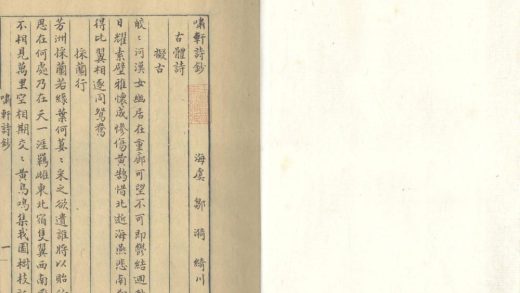 嘯軒詩鈔 海虞 鄒漪 綺川
古體詩
擬古
皎〻河漢女幽居在重廊可望不可即鬱結迴
日耀素壁雅懷成慘傷黃鵠惜北逝海燕悲南
得比翼相逐同鴛鴦
採蘭行
芳洲採蘭若綠葉何萋〻采之欲遺誰將以貽
思在何處乃在天一涯羈雌東北宿隻翼西南
不相見萬里空相期交〻黃鳥鳴集我園樹枝
嘯軒詩鈔 一